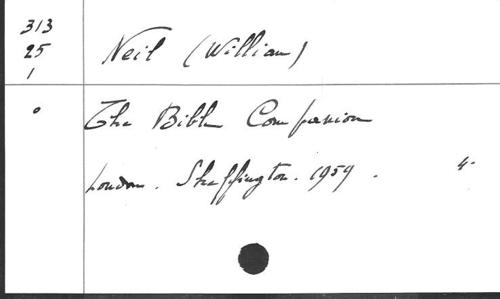 313
25
1
Neil (William)
o
The Bible Companion
London. Skeffington. 1959.
4.